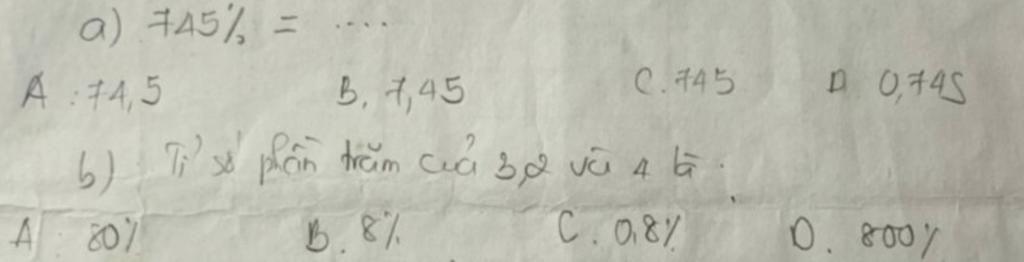 a) 745% = ....
A. 74,5 B. 7,45 C. 745 D. 0,745
b) Tỉ số phần trăm của 3,2 và 4 là.
A. 80% B. 8% C. 0,8% D. 800%